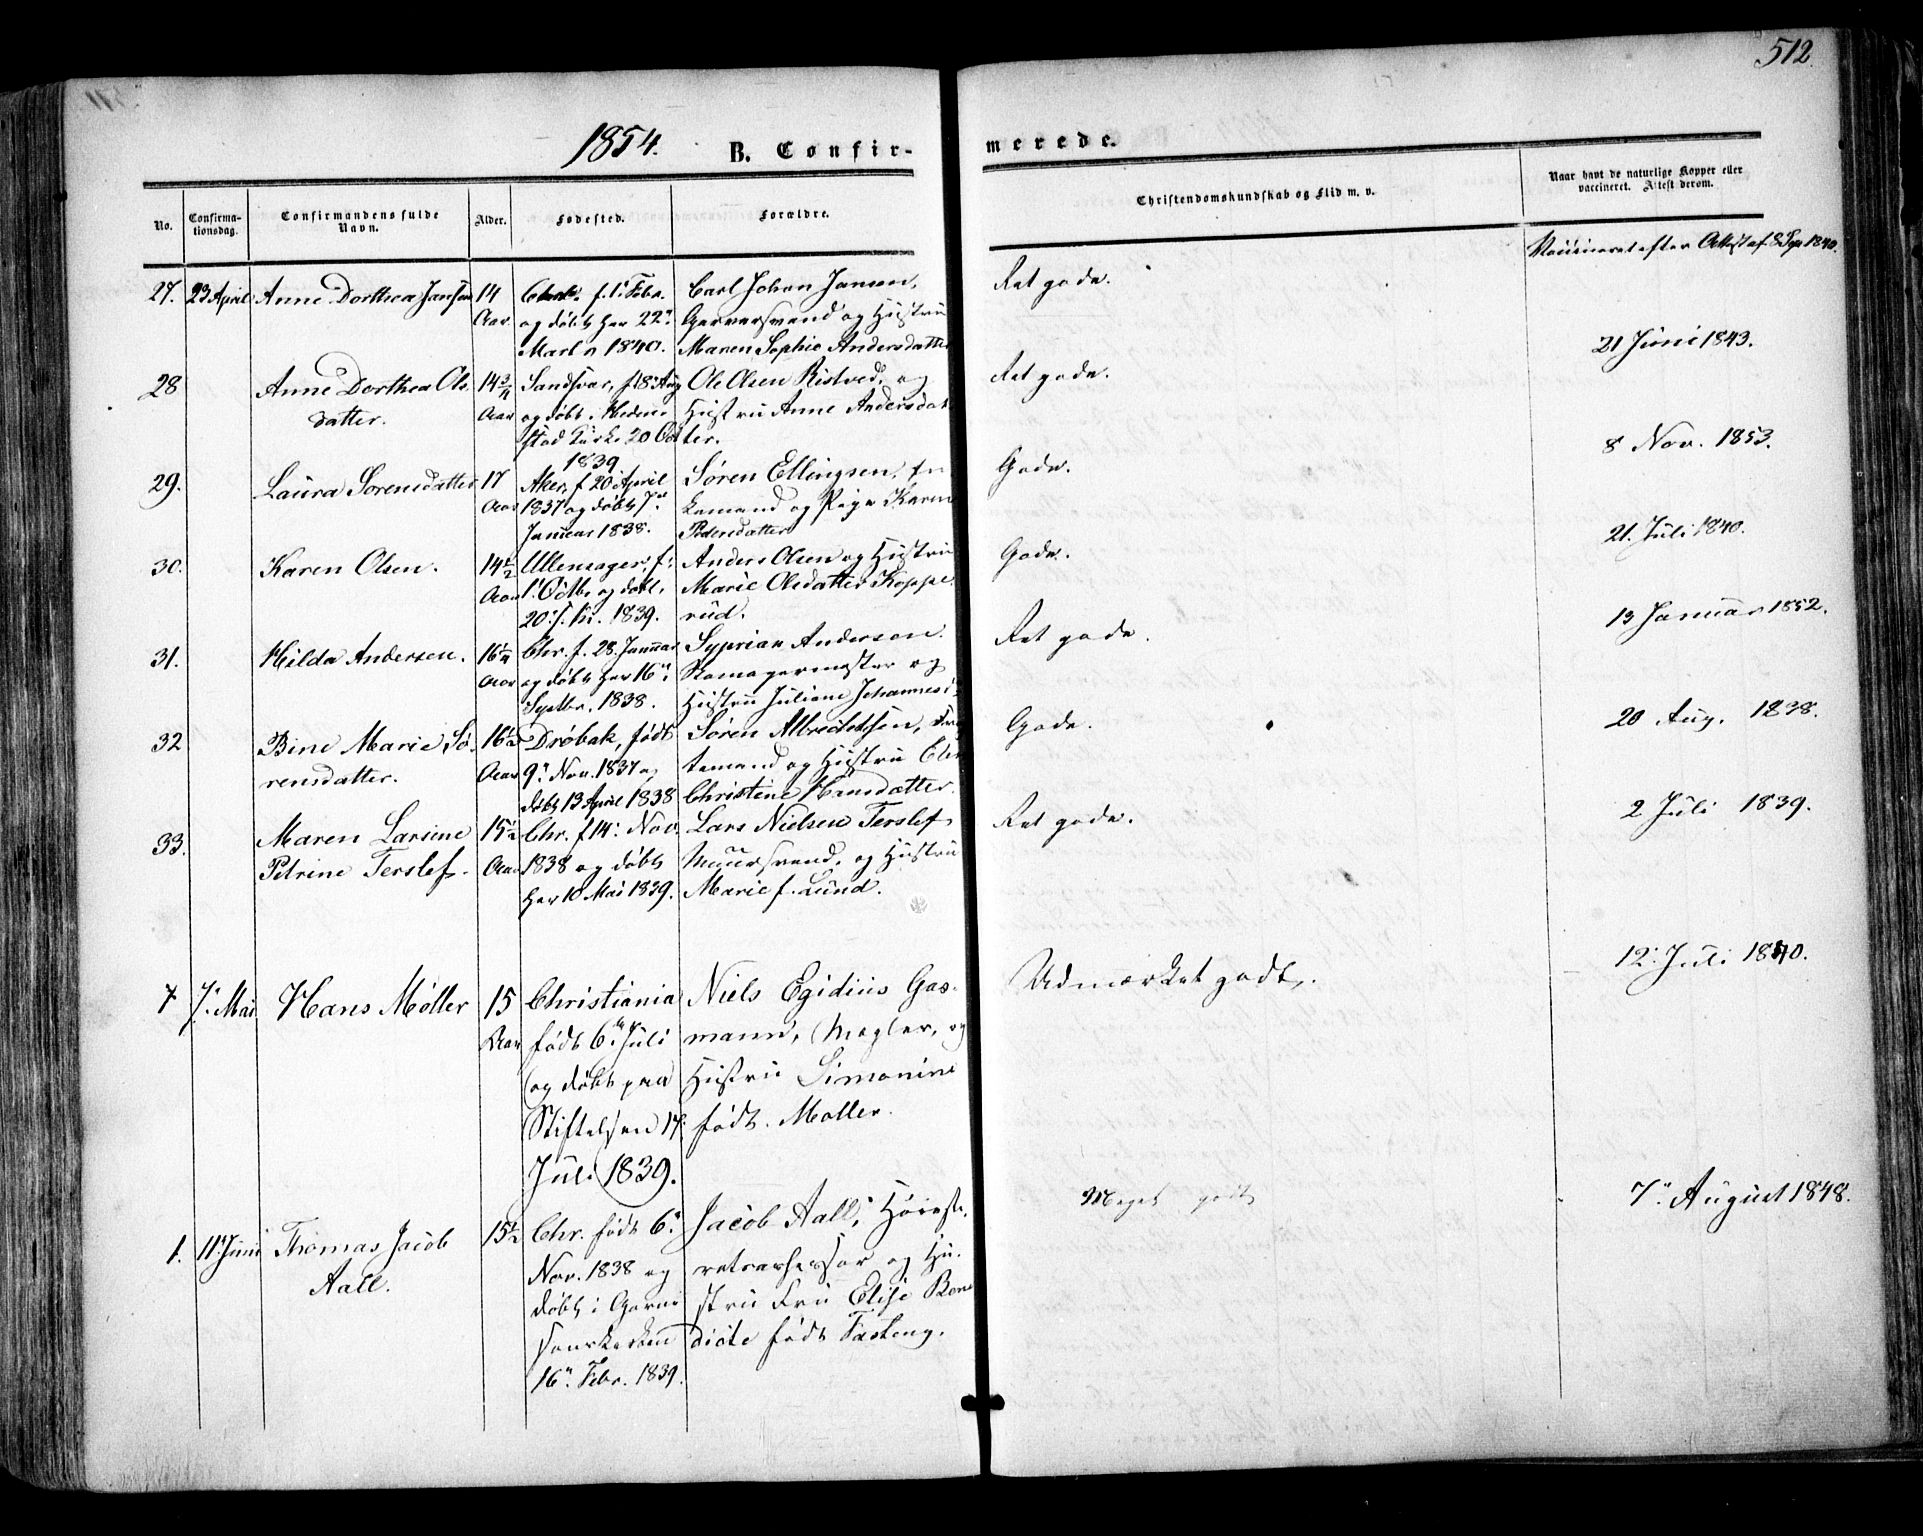 512.
1854. B. Confir-
merede.
No.
Confirma-
tionsdag.
Confirmandens fulde
Navn.
Alder.
Fødested.
Forældre.
Christendomskundskab og Flid m. v.
Naar havt de naturlige Kopper eller
vaccineret. Attest derom.
27. 23 April Anne Dorthea Jansen 14
Aar
Chr. f. 1. Febr.
og døbt her 22n
Marts 1840.
Carl Johan Jansen,
Garversvend og Hustru
Maren Sophie Andersdatter
Ret gode.
Vaccineret efter Attest af 8 Sep 1840.
28 Anne Dorthea Ols
datter.
14 3/4
Aar
Sandsvær, f. 18 Aug
og døbt Hedens
stad Kirke 20 Oct
1839
Ole Olsen Ristved, og
Hustru Anne Andersdat
ter.
Ret gode.
21 Juni 1843.
29. Laura Sørensdatter 17
Aar
Aker, f 20 April
1837 og døbt 7de
Januar 1838.
Søren Ellingsen,
og Pige Karen
Pedersdatter
Gode.
8 Nov. 1853.
30. Karen Olsen. 14 1/2
Aar
Ullensager, f.
1. Octbr og døbt
20. s. M. 1839.
Anders Olsen og Hustru
Marie Olsdatter Koppe
rud.
Gode.
21. Juli 1840.
31. Hilda Andersen. 16 1/4
Aar
Chr. f. 28. Januar
og døbt her 16n
Septbr. 1838.
Syprian Andersen.
Skomagermester og
Hustru Juliane Johannes
Ret gode.
13 Januar 1852.
32 Bine Marie Sø-
rensdatter.
16 1/2
Aar
Drøbak, født
9n Nov. 1837 og
døbt 13 April 1838
Søren Albrechtsen,
og Hustru Elen
Christine Hansdatter.
Gode.
20 Aug. 1838.
33. Maren Larsine
Petrine Terslef.
15 1/2
Aar
Chr. f 14. Nov.
1838 og døbt
her 10 Mai 1839.
Lars Nielsen Terslef
Muursvend, og Hustru
Marie f. Lund.
Ret gode.
2 Juli 1839.
7 7. Mai Hans Møller 15
Aar
Christiania
født 6te Juli
og døbt paa
Stiftelsen 17.
Juli 1839.
Niels Egidius Gas-
mann, Mægler, og
Hustru Simonine
født Møller.
Udmærket godt.
12. Juli 1840.
1. 11. Juni Thomas Jacob
Aall.
15 1/2
Chr. født 6n
Nov. 1838 og
døbt i Garni
sonskirken
16n. Febr. 1839.
Jacob Aall, Høieste-
retsassessor og Hu-
stru Fru Elise Bene
dicte født Fasting.
Meget godt
7n August 1848.